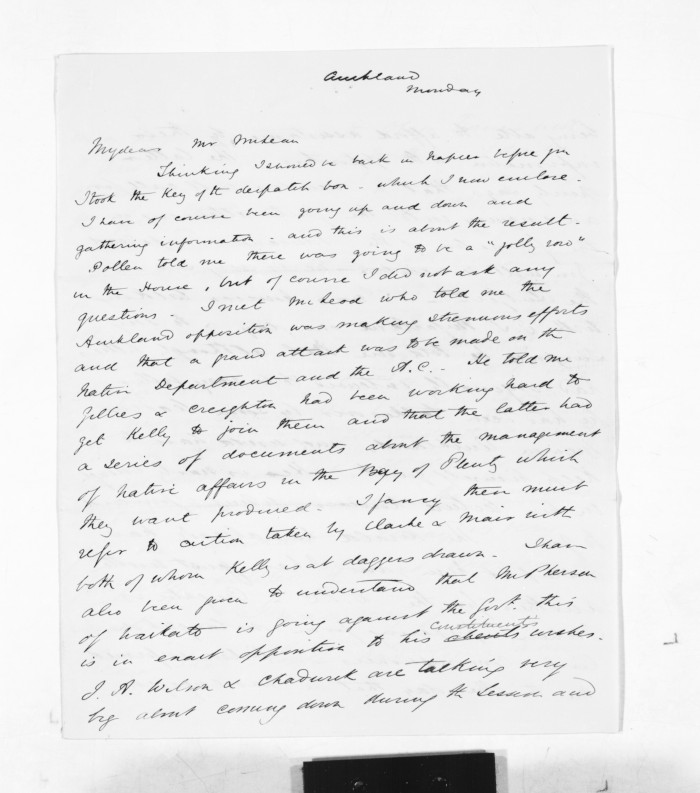 Auckland
Monday
My dear Mr McLean
Thinking I should be back in Napier before you
I took the Key of the despatch box - which I now enclose.
I have of course been going up and down and
gathering information - and this is about the result.
Pollen told me there was going to be a "jolly row"
in the House, but of course I did not ask any
questions. I met McLeod who told me the
Auckland opposition was making strenuous efforts
and that a grand attack was to be made on the
Native Department and the A.C. He told me
Gillies & Creighton had been working hard to
get Kelly to join them and that the latter had
a series of documents about the management
of native affairs in the Bay of Plenty which
they want produced. I fancy these must
refer to action taken by Clarke & Mair with
both of whom Kelly is at daggers drawn. I have
also been given to understand that McPherson
of Waikato is going against the Govt. this
is in exact opposition to his constituents wishes.
J. A. Wilson & Chadwick are talking very
big about coming down during the Session and